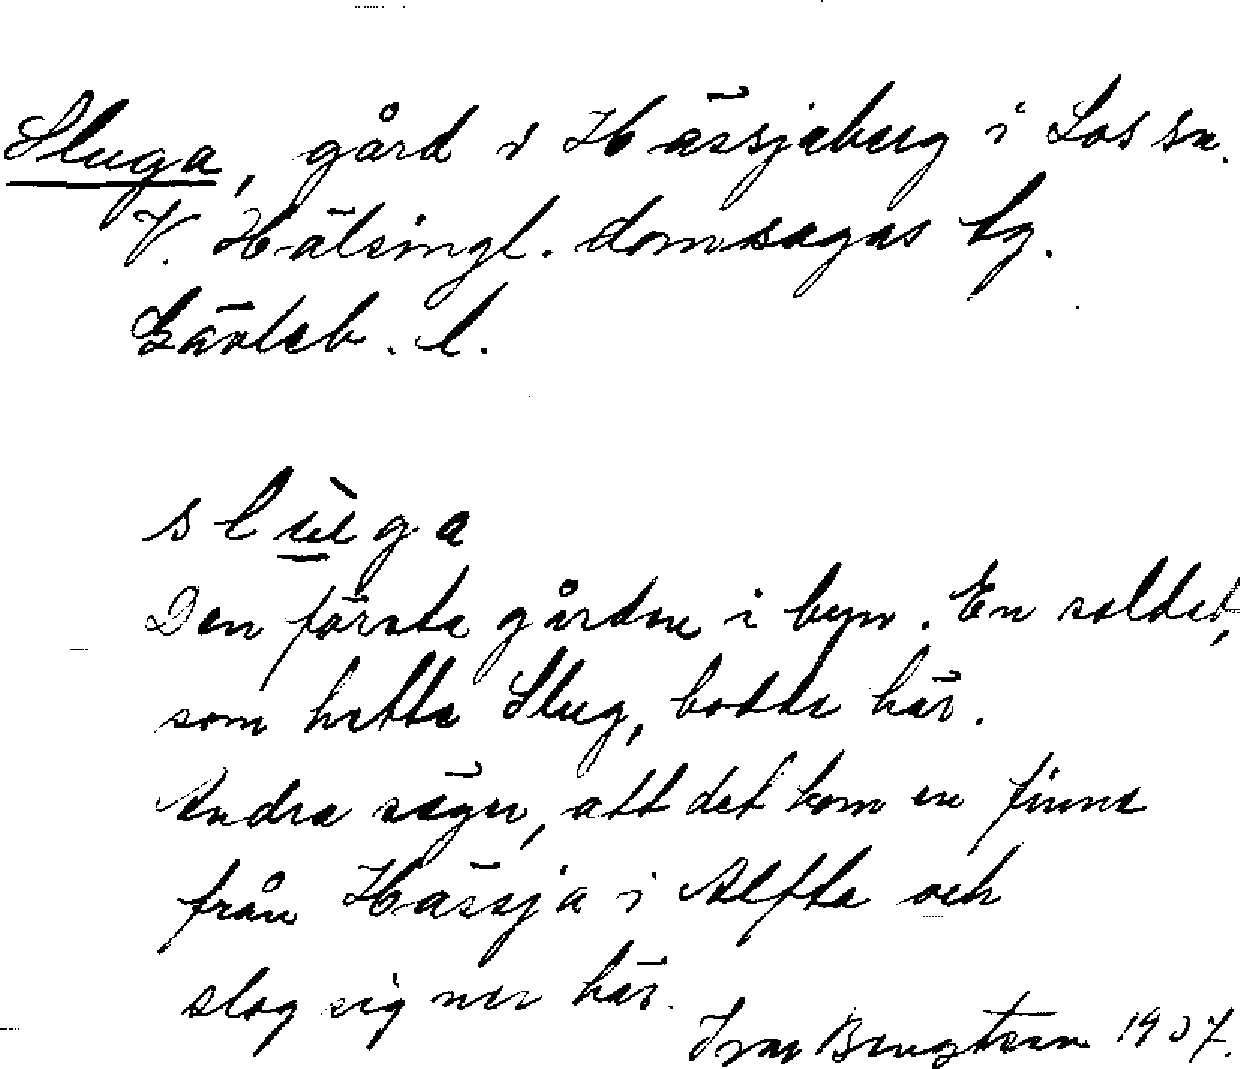 Sluga, gård i Hässjaberg i Los sn.
V. Hälsingl. domsagas tg.
Gävleb. l.
slùga
Den första gården i byn. En soldat,
som hette Slug, bodde här.
Andra säger, att det kom en finne
från Hässja i Alfta och
slog sig ner här.
Bengtson 1937.